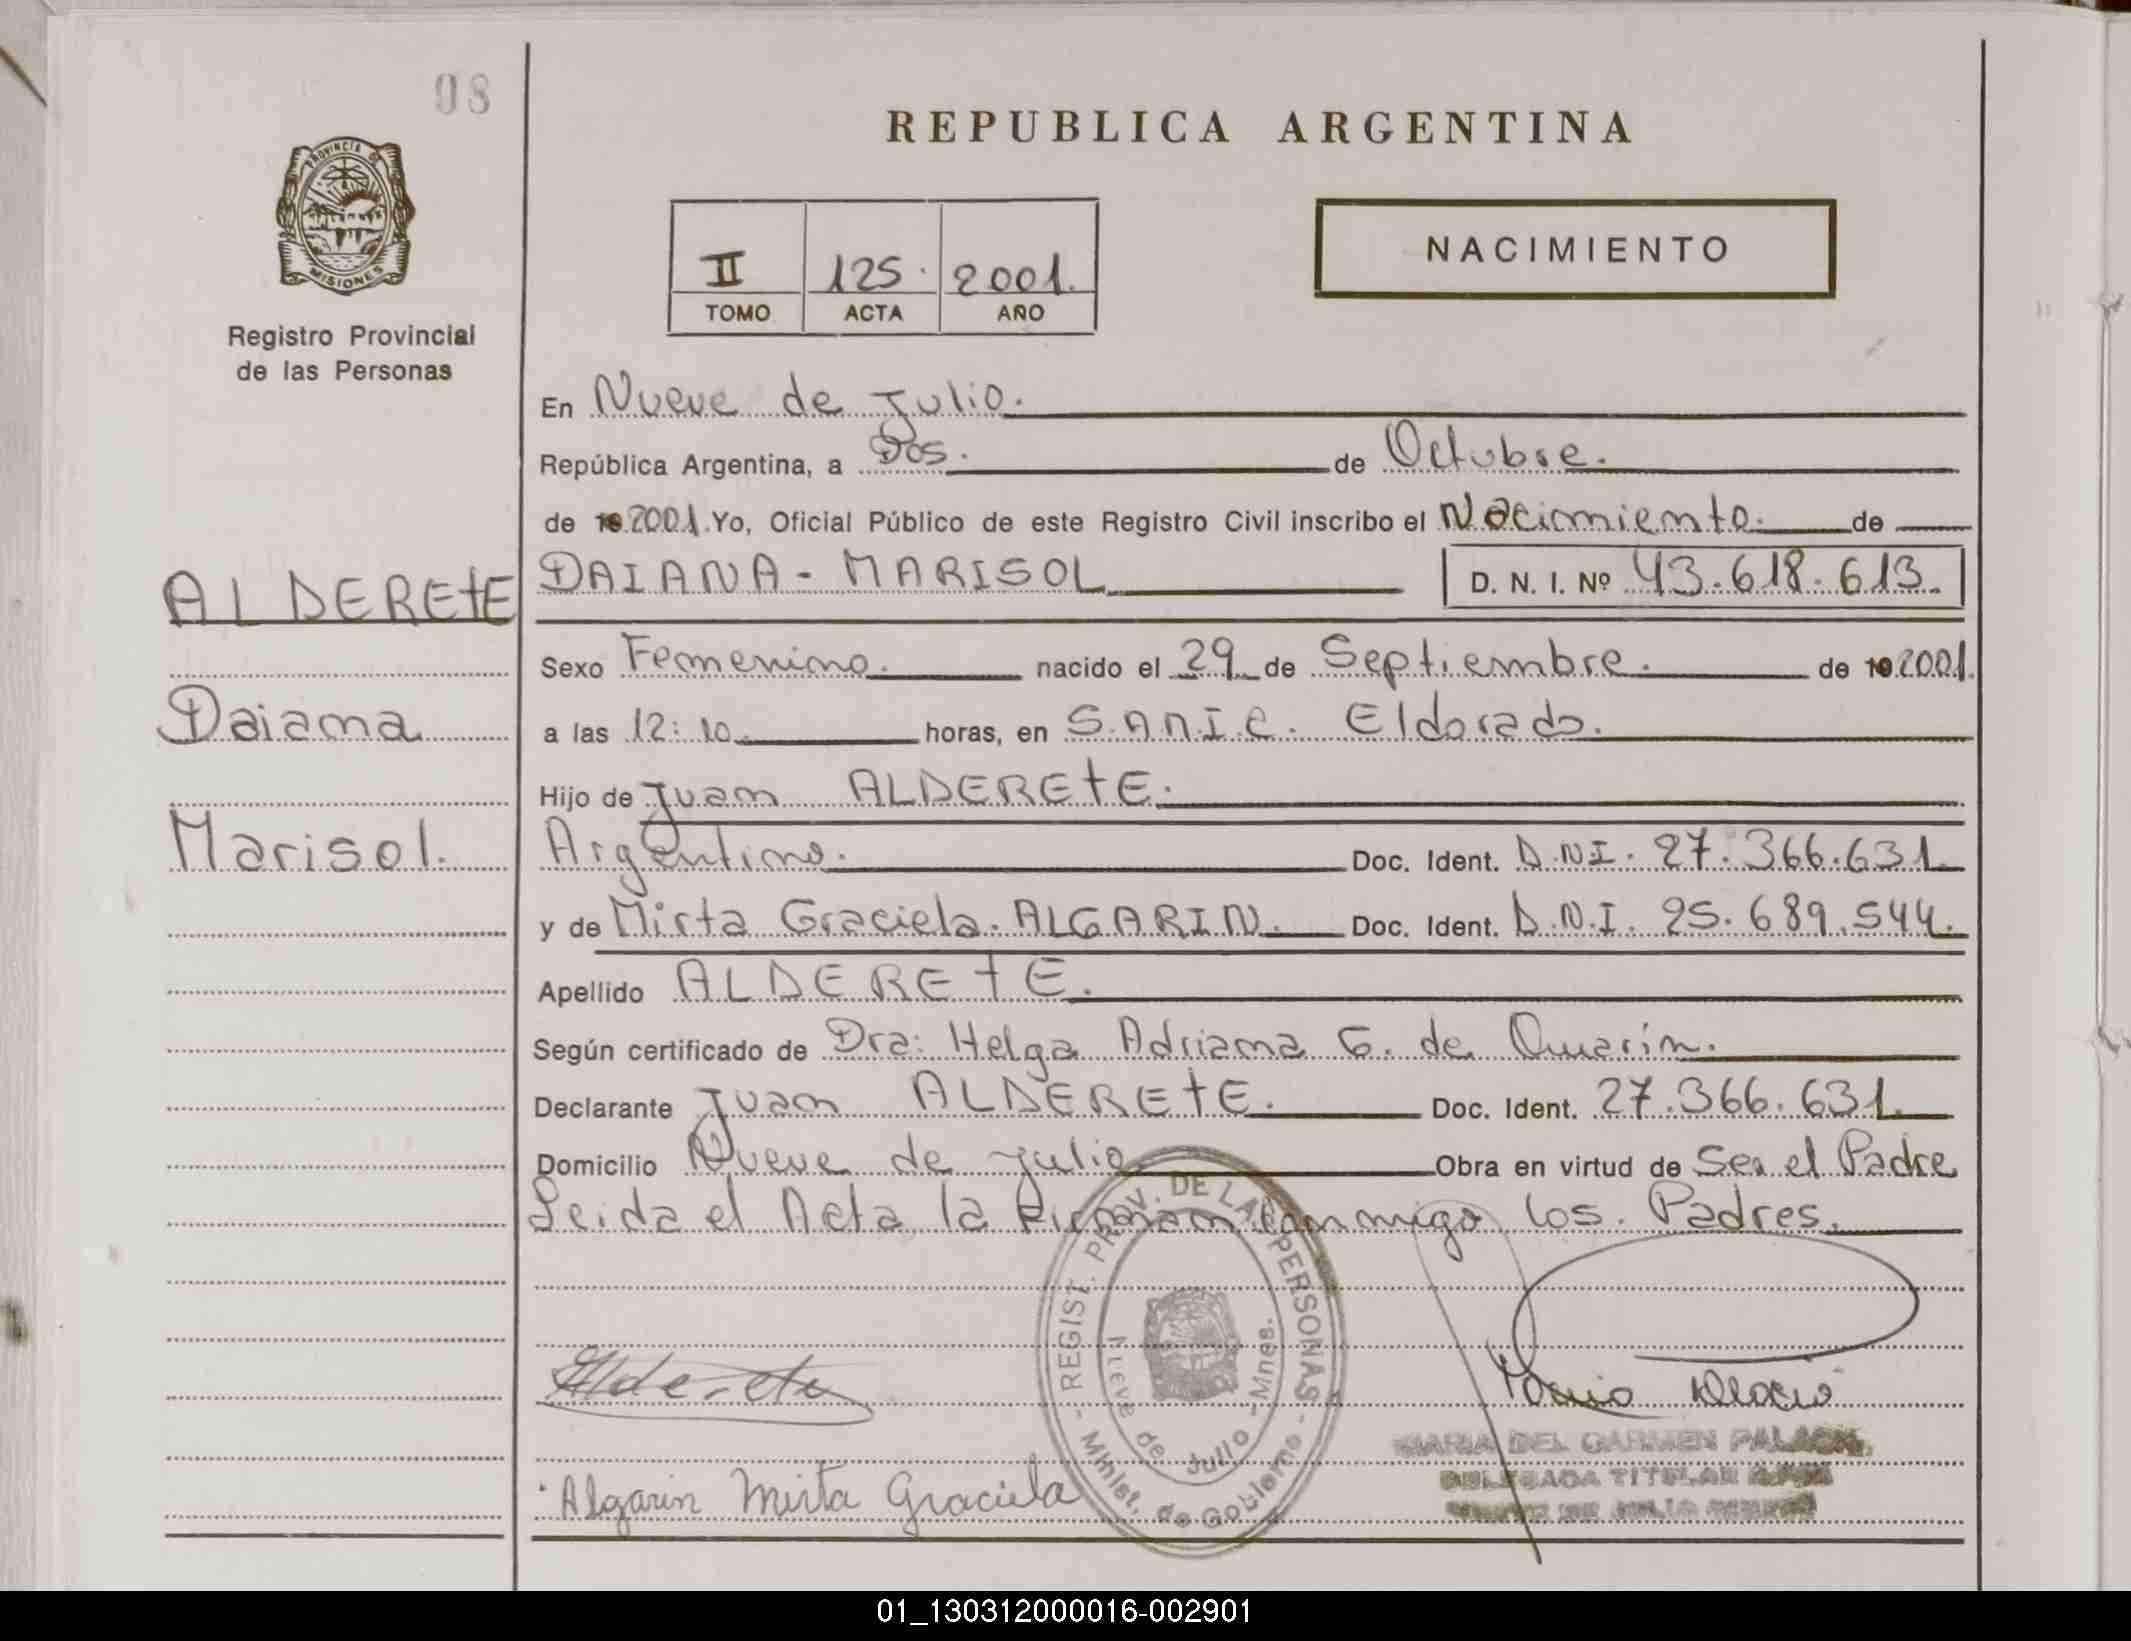 08
PROVINCIA DE
MISIONES
Registro Provincial
de las Personas
REPUBLICA ARGENTINA
II 125. 2001.
TOMO ACTA AÑO
NACIMIENTO
En Nueve de Julio.
República Argentina, a Dos. de Octubre.
de 19 2001 Yo, Oficial Público de este Registro Civil inscribo el Nacimiento. de
ALDEREtE
DAIANA - MARISOL D. N. I. Nº 43.618.613.
Sexo Femenino. nacido el 29 de Septiembre. de 19 2001.
Daiana
a las 12:10 horas, en S.A.M.I.C. Eldorado.
Hijo de Juan ALDEREtE.
Marisol.
Argentino. Doc. Ident. D.N.I. 27.366.631.
y de Mirta Graciela. ALGARIN. Doc. Ident. D.N.I. 25.689.544.
Apellido ALDEREtE.
Según certificado de Dra: Helga Adriana G. de
Declarante Juan ALDEREtE. Doc. Ident. 27.366.631.
Domicilio Nueve de Julio Obra en virtud de Ser el Padre
Leida el Acta la Firman conmigo los. Padres.
- REGIST. PROV. DE LAS PERSONAS -
Minist. de Gobierno
Nueve de Julio - Mnes.
Alderete
MARIA DEL CARMEN
DELEGADA TITULAR
Algarin Mirta Graciela
01_130312000016-002901